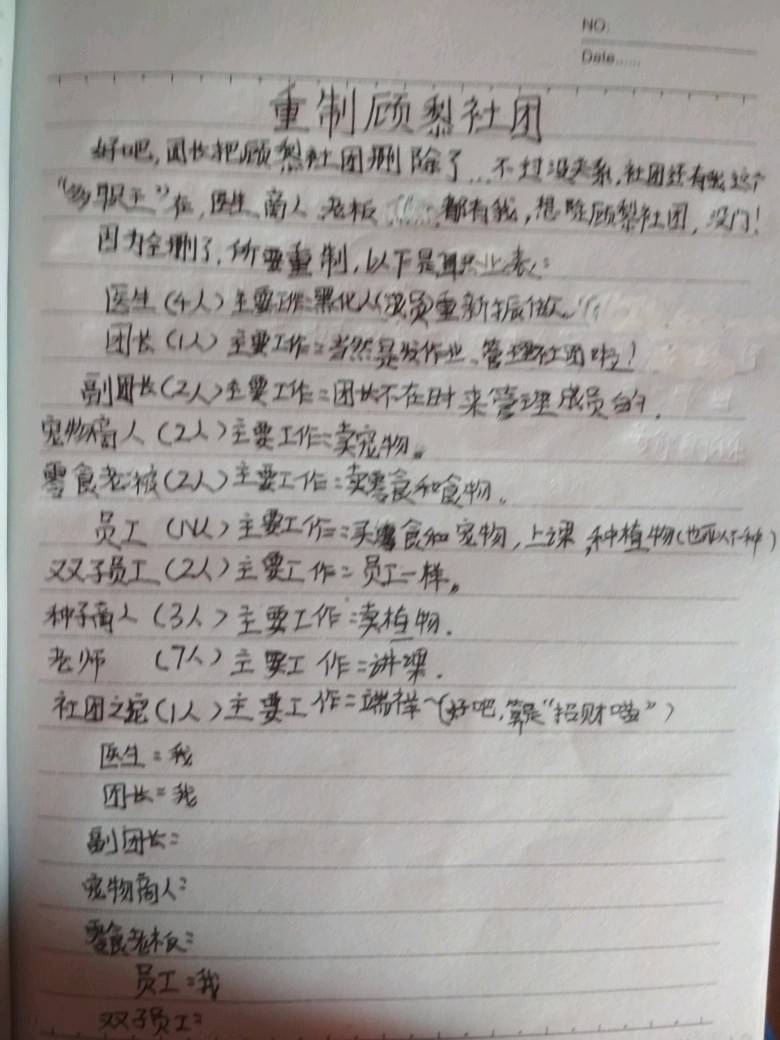 NO.
Date......
重制顾梨社团
好吧,团长把顾梨社团删除了...不过没关系,社团还有我这个
"多职王"在,医生、商人、老板 都有我,想除顾梨社团,没门!
因为全删了,所要重制,以下是职业表:
医生(4人)主要工作:黑化人(成员)重新振做。
团长(1人)主要工作:当然是发作业、管理社团啦!
副团长(2人)主要工作:团长不在时来管理成员的.
宠物商人(2人)主要工作:卖宠物。
零食老板(2人)主要工作:卖零食和食物。
员工(N人)主要工作:买零食和宠物,上课,种植物(也可以不种)
双子员工(2人)主要工作:员工一样。
种子商人(3人)主要工作:卖植物.
老师 (7人)主要工作:讲课.
社团之宠(1人)主要工作:瑞祥~(好吧,算是"招财喵")
医生:我
团长:我
副团长:
宠物商人:
零食老板:
员工:我
双子员工: